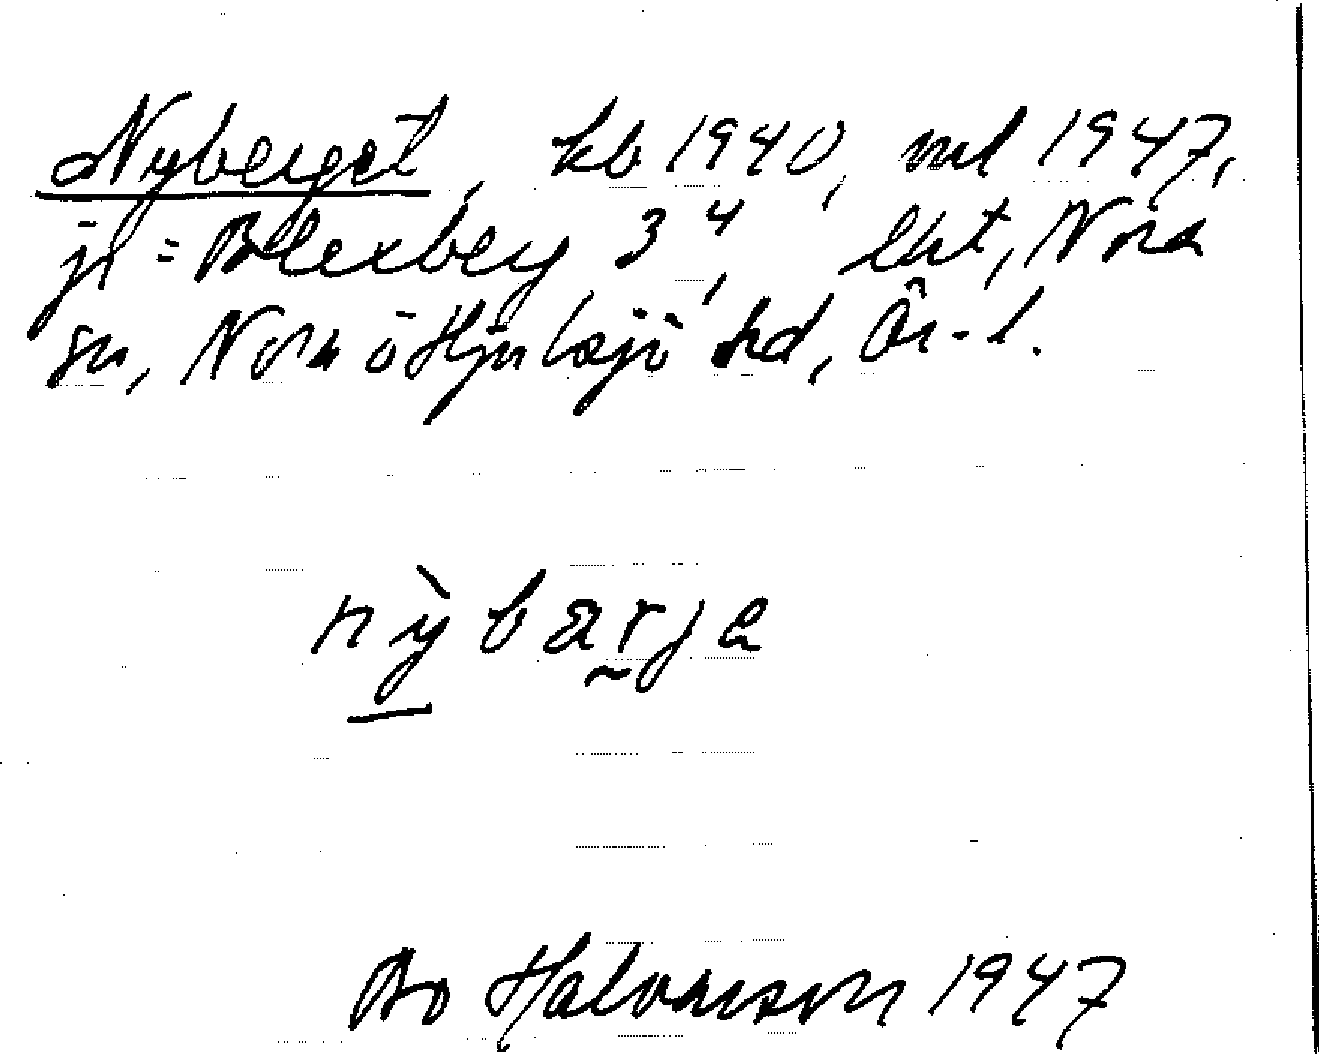 Nyberget, kb 1940, ml 1947,
jr = Blexberg 3 4, lht, Nora
sn, Nora o Hjulsjö hd, Ör-l.
nỳbærje
Bo Halvarson 1947